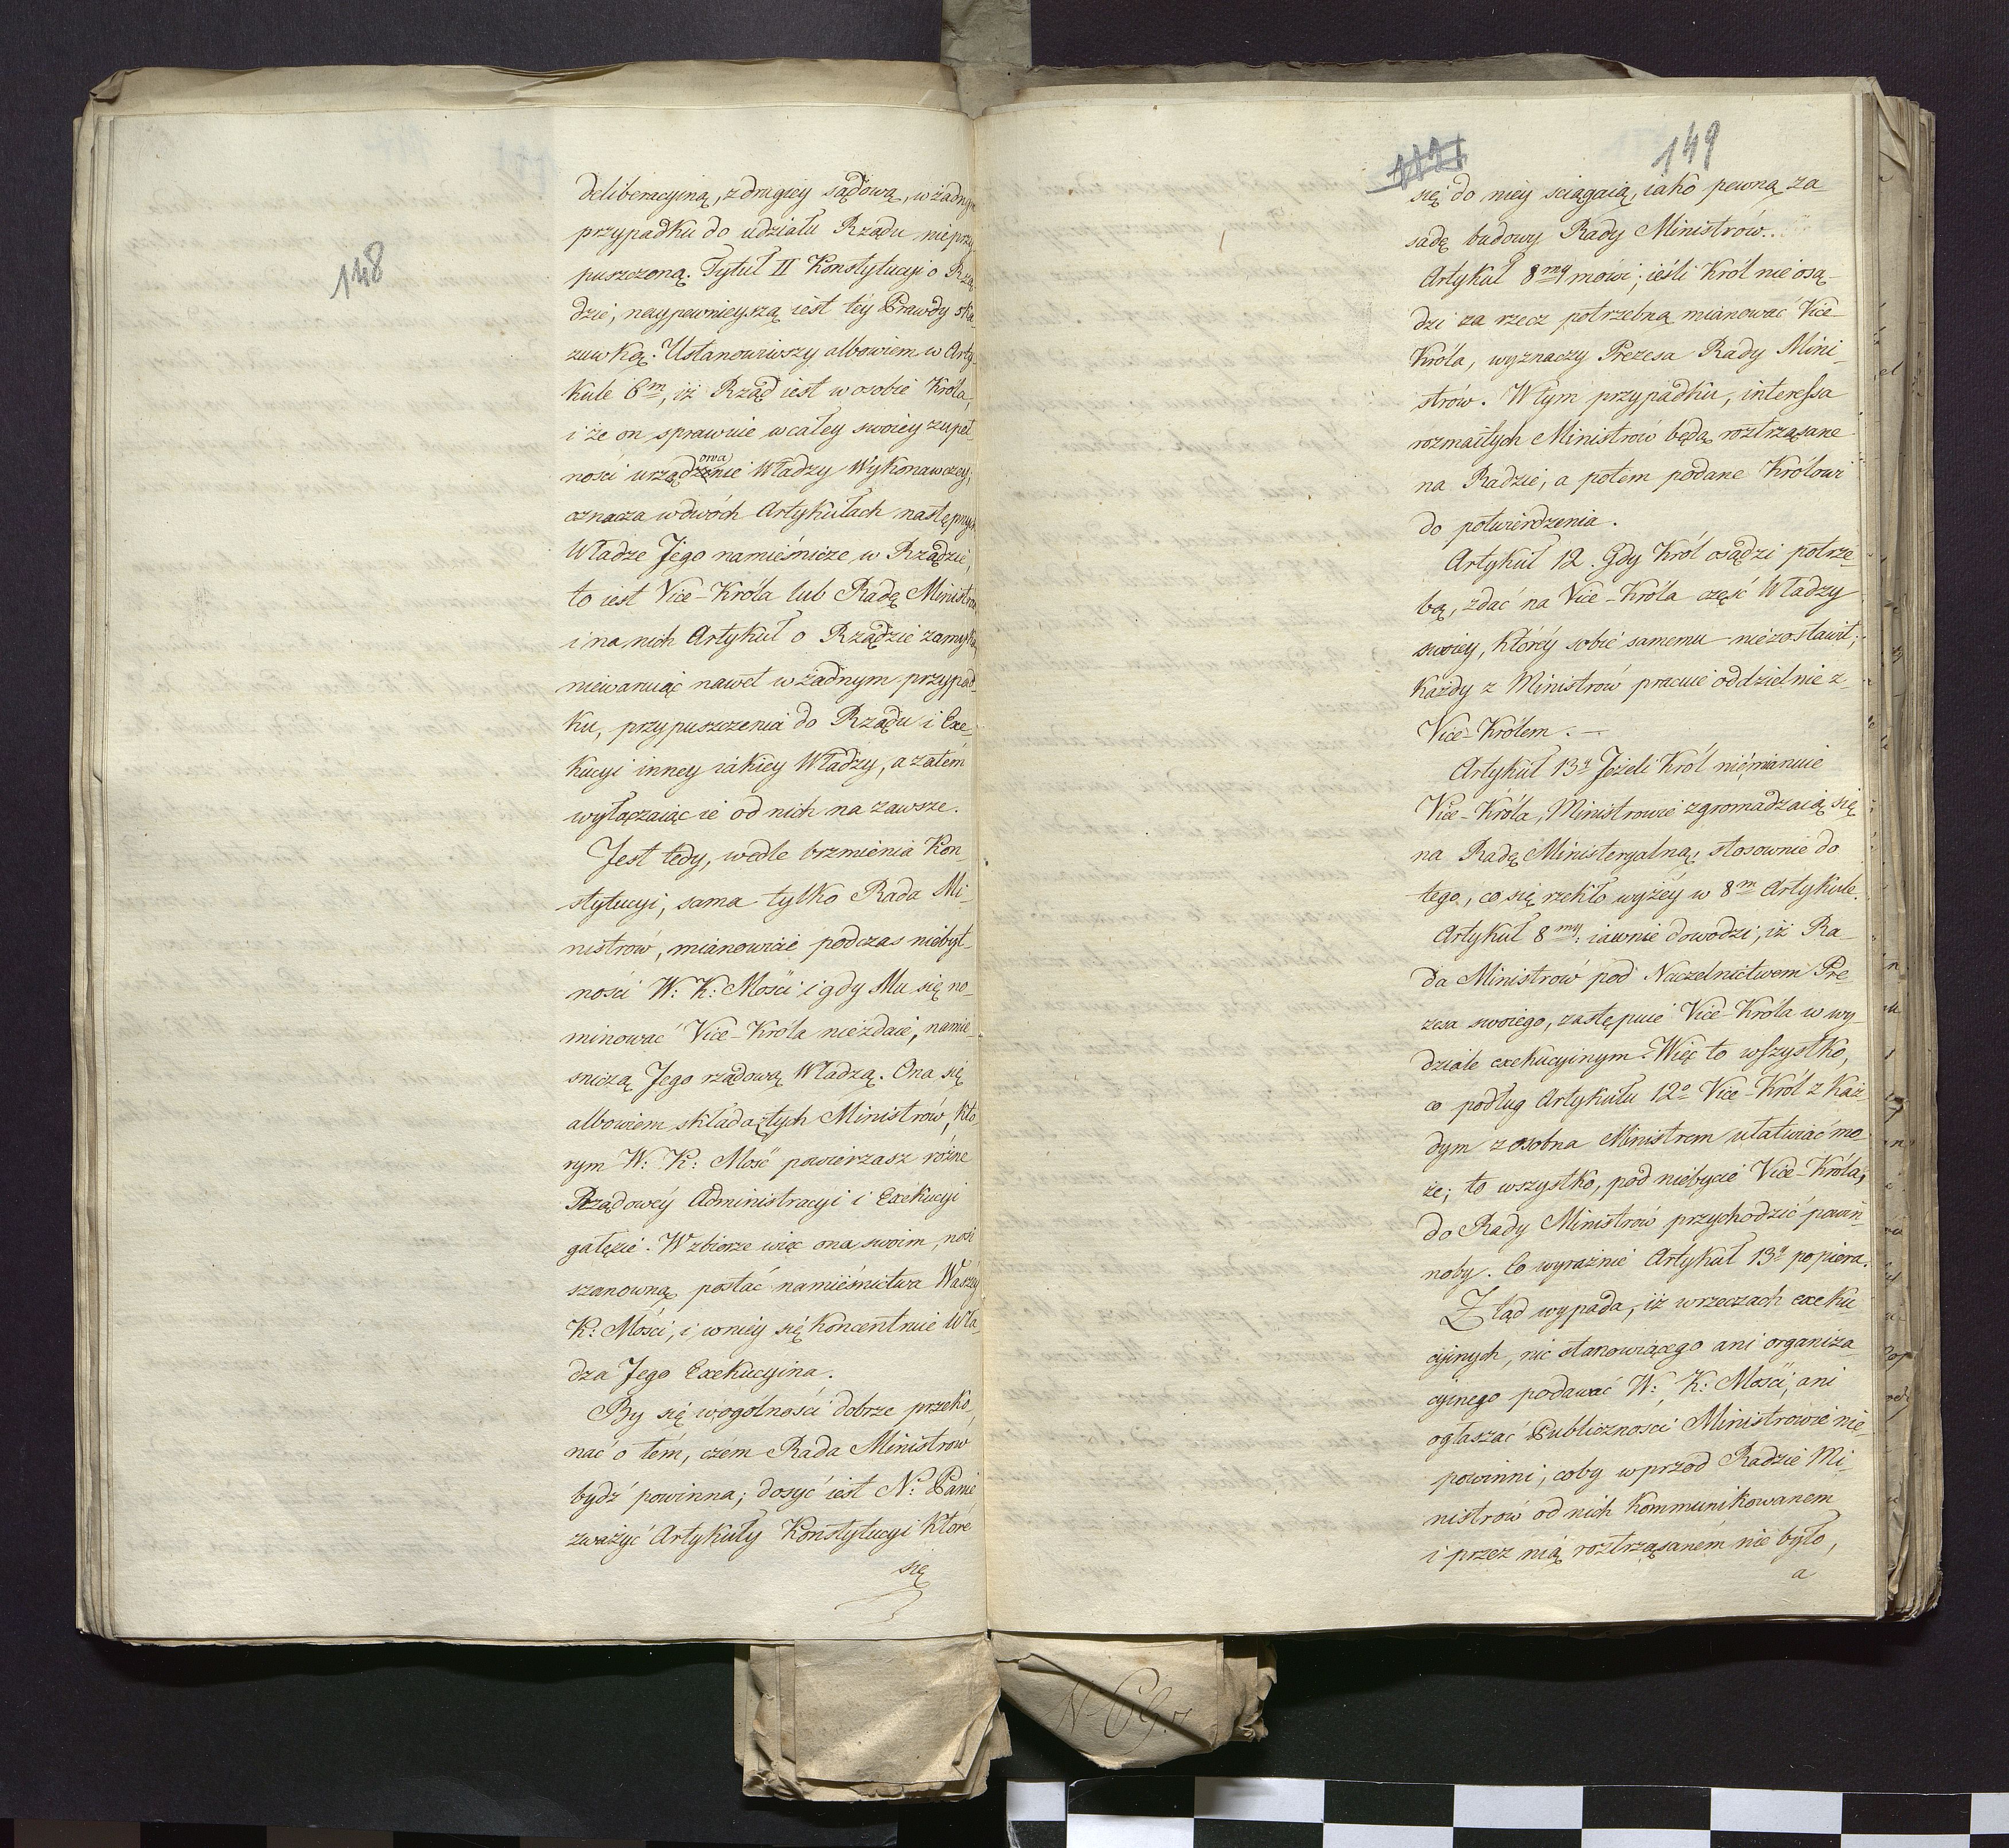 148
deliberacyiną, z drugiey sądową, w żadnym
przypadku do udziału Rządu nieprzy
puszczoną. Tytuł II Konstytucyi o Rzą
dzie, naypewnieyszą iest téy Prawdy ska-
zuwką. Ustanowiwszy albowiem w Arty-
kule 6m, iż Rząd iest w osobie Króla,
i że on sprawuie w całey swoiey zupeł-
ności urządzenie owa Władzy Wykonawczey,
oznacza w dwóch Artykułach następnych
Władze Jego namieśnicze w Rządzie,
to iest Vice-Króla lub Radę Ministrów
i na nich Artykuł o Rządzie zamyka,
niewaruiąc nawet w żadnym przypad-
ku, przypuszczenia do Rządu i Exe-
kucyi inney iakiey Władzy, a zatém
wyłączaiąc ie od nich na zawsze.
Jest tedy, wedle brzmienia Kon-
stytucyi, sama tylko Rada Mi-
nistrów, mianowicie podczas niebyt-
ności W: K: Mości i gdy Mu się no-
minować Vice-Króla niezdaie, namie-
sniczą Jego rządową Władzą. Ona się
albowiem składa z tych Ministrów, któ
rym W: K: Mość powierzasz różne
Rządowéy Administracyi i Exekucyi
gałęzie. W zbiorze więc ona swoim, nosi
szanowną postać namieśnictwa Waszéy
K: Mości, i w niey się koncentruie Wła-
dza Jego Exekucyina.
By się w ogólności dobrze przeko-
nać o tém, czém Rada Ministrow
bydź powinna; dosyć iest N: Panie
zważyć Artykuły Konstytucyi które
się
149
się do niey sciągaią, iako pewną za
sadę budowy Rady Ministrów.
Artykuł 8my mówi; ieśli Król nie osą-
dzi za rzecz potrzebną mianować Vice-
Króla, wyznaczy Prezesa Rady Mini-
strów. W tym przypadku, interessa
rozmaitych Ministrów będą roztrząsane
na Radzie, a potem podane Królowi
do potwierdzenia.
Artykuł 12. Gdy Król osądzi potrze-
bą, zdać na Vice-Króla część Władzy
swoiey, któréy sobie samemu niezostawił;
każdy z Ministrów pracuie oddzielnie z-
Vice-Królem. -
Artykuł 13y Jeżeli Król niémianuie
Vice-Króla, Ministrowie zgromadzaią się
na Radę Ministeryalną, stosownie do
tego, co się rzekło wyżéy w 8m Artykule.
Artykuł 8my: iawnie dowodzi, iż Ra-
da Ministrów pod Naczelnictwem Pre-
zesa swoiego, zastępuie Vice-Króla w wy-
dziale exekucyinym. Więc to wszystko,
co podług Artykułu 12o Vice-Król z każ-
dym z osobna Ministrem ułatwiać mo-
że; to wszystko, pod niebycie Vice-Króla,
do Rady Ministrów przychodzić powin-
noby. Co wyraźnie Artykuł 13y popiera.
Z tąd wypada, iż w rzeczach exeku
cyinych, nic stanowiącego ani organiza-
cyinego podawać W: K: Mości, ani
ogłaszać Publiczności Ministrowie nie-
powinni, coby wprzod Radzie Mi-
nistrów od nich kommunikowanem
i przez nią roztrząsaném nie było,
a